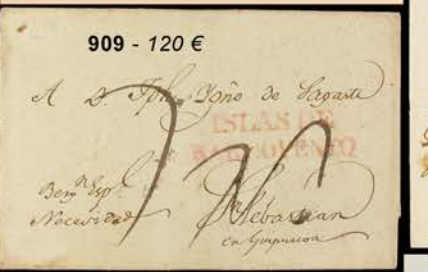 909 - 120 €
A D. Jph. Ygño de Sagasti
ISLAS DE
BARLOVENTO
Necesidad
Sn Sebastian
en Guipuscoa